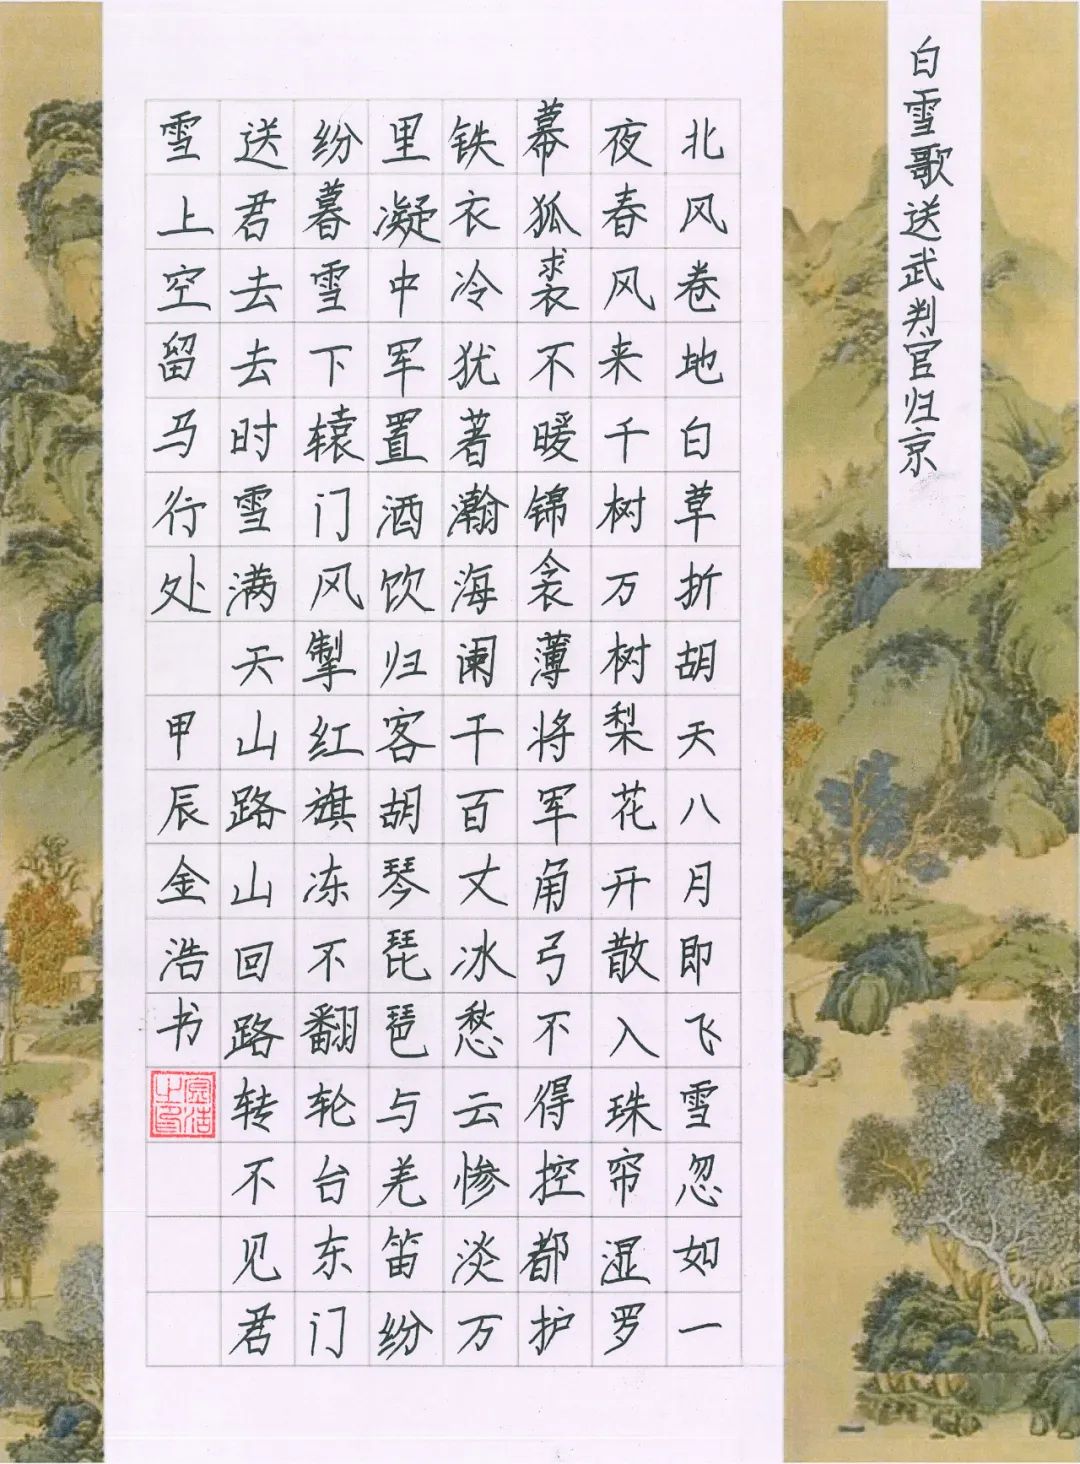 白雪歌送武判官归京
北风卷地白草折胡天八月即飞雪忽如一
夜春风来千树万树梨花开散入珠帘湿罗
幕狐裘不暖锦衾薄将军角弓不得控都护
铁衣冷犹著瀚海阑干百丈冰愁云惨淡万
里凝中军置酒饮归客胡琴琵琶与羌笛纷
纷暮雪下辕门风掣红旗冻不翻轮台东门
送君去去时雪满天山路山回路转不见君
雪上空留马行处 甲辰金浩书
金浩之印